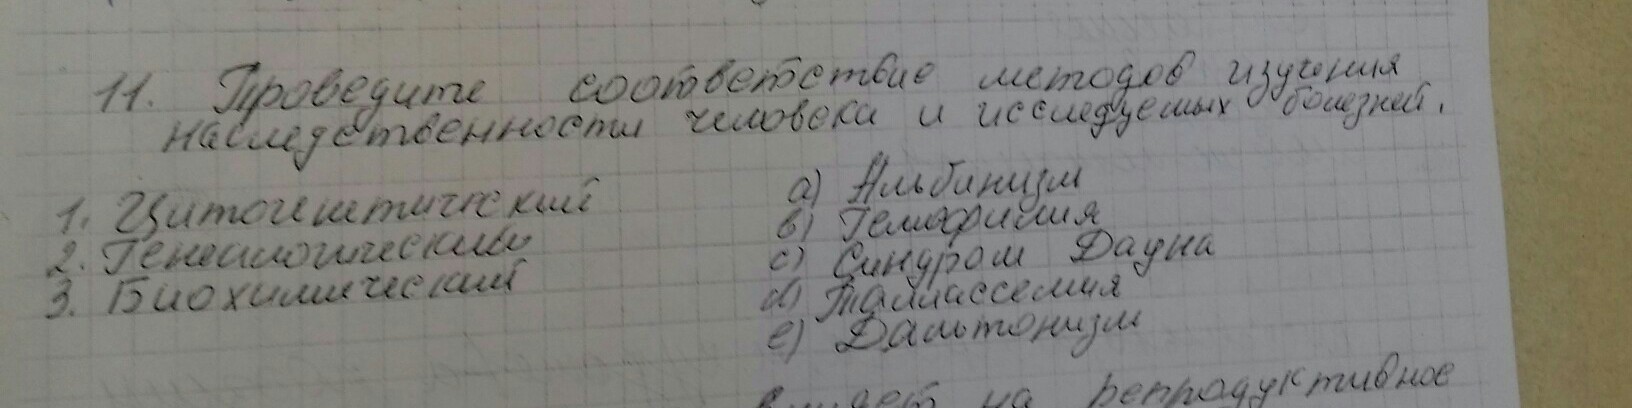 11. Проведите соответствие методов изучения
наследственности человека и исследуемых болезней.
1. Цитогенетический
2. Генеалогический
3. Биохимический
а) Альбинизм
в) Гемофилия
с) Синдром Дауна
d) Таллассемия
е) Дальтонизм
влияет на репродуктивное